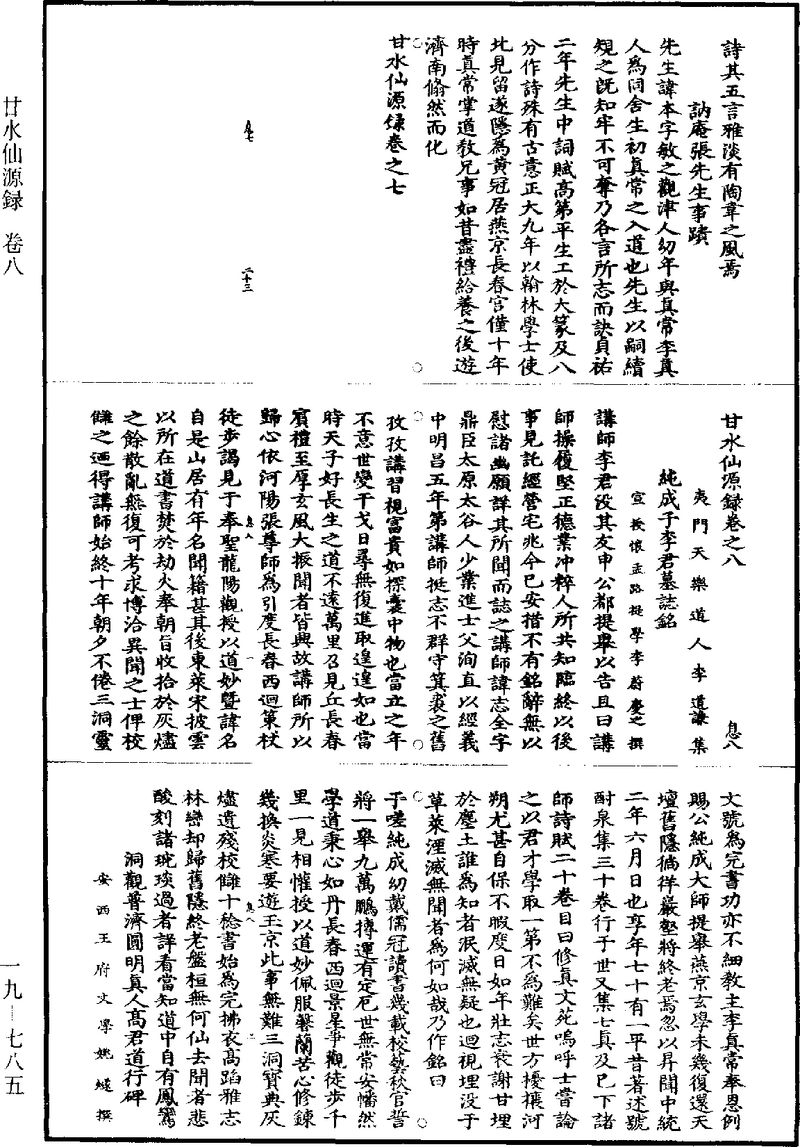 詩其五言雅淡有陶韋之風焉
訥庵張先生事蹟
先生諱本字敏之觀津人幼年與真常李真
人為同舍生初真常之入道也先生以嗣續
規之既知牢不可奪乃各言所志而訣貞祐
二年先生中詞賦高第平生工於大篆及八
分作詩殊有古意正大九年以翰林學士使
北見留遂隱為黃冠居燕京長春宮僅十年
時真常掌道教兄事如昔盡禮給養之後遊
濟南翛然而化
甘水仙源録卷之七
息七
二十三
甘水仙源録卷之八
息八
夷門天樂道人李道謙集
純成子李君墓誌銘
宣教懷孟路提學李蔚慶之撰
講師李君没其友申公都提舉以告且曰講
師操履堅正德業冲粹人所共知臨終以後
事見託經營宅兆今已安措不有銘辭無以
慰諸幽願詳其所聞而誌之講師諱志全字
鼎臣太原太谷人少業進士父洵直以經義
中明昌五年第講師挺志不群守箕裘之舊
孜孜講習視富貴如探囊中物也當立之年
不意世變干戈日尋無復進取遑遑如也當
時天子好長生之道不遠萬里召見丘長春
賓禮至厚玄風大振聞者皆興故講師所以
歸心依河陽張尊師為引度長春西迴策杖
息八
一
徒步謁見于奉聖龍陽觀授以道妙暨諱名
自是山居有年名聞籍甚其後東萊宋披雲
以所在道書焚於劫火奉朝旨收拾於灰燼
之餘散亂無復可考求博洽異聞之士俾校
讎之迺得講師始終十年朝夕不倦三洞靈
文號為完書功亦不細教主李真常奉恩例
賜公純成大師提舉燕京玄學未幾復還天
壇舊隱徜徉巖壑將終老焉忽以昇聞中統
二年六月日也享年七十有一平昔著述號
酎泉集三十卷行于世又集七真及已下諸
師詩賦二十卷目曰修真文苑嗚呼士嘗論
之以君才學取一第不為難矣世方擾攘河
朔尤甚自保不暇度日如年壯志衰謝甘埋
於塵土誰為知者泯滅無疑也迴視埋没于
草萊湮滅無聞者為何如哉乃作銘曰
于嗟純成幼戴儒冠讀書幾載校藝秋官誓
將一舉九萬鵬摶運有定厄世無常安幡然
學道秉心如丹長春西迴景星爭觀徒步千
里一見相懽授以道妙佩服馨蘭苦心修鍊
幾換炎寒要遊玉京此事無難三洞寶典灰
息八
二
燼遺殘校讎十稔書始為完拂衣高蹈雅志
林巒却歸舊隱終老盤桓無何仙去聞者悲
酸刻諸琬琰過者詳看當知道中自有鳳鸞
洞觀普濟圓明真人高君道行碑
安西王府文學姚燧撰
甘水仙源録　卷八
一九—七八五